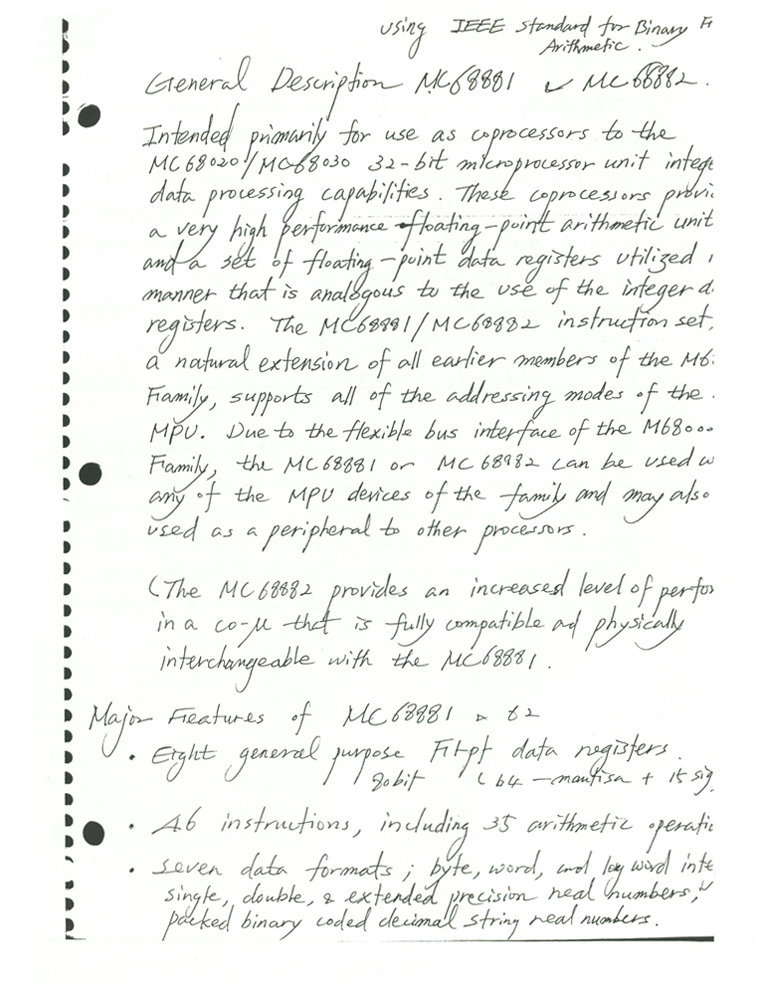 using IEEE Standard for Binary Fl
Arithmetic.
General Description MC68881 MC68882.
Intended primarily for use as coprocessors to the
MC68020/MC68030 32-bit microprocessor unit intege
data processing capabilities. These coprocessors provi
a very high performance floating-point arithmetic unit
and a set of floating-point data registers utilized i
manner that is analogous to the use of the integer d
registers. The MC68881/MC68882 instruction set,
a natural extension of all earlier members of the M6
Family, supports all of the addressing modes of the
MPU. Due to the flexible bus interface of the M68000
Family, the MC68881 or MC68882 can be used w
any of the MPU devices of the family and may also
used as a peripheral to other processors.
(The MC68882 provides an increased level of perfor
in a co-μ that is fully compatible ad physically
interchangeable with the MC68881.
Major Features of MC68881 82
• Eight general purpose Fltpt data registers.
80bit (64 - mantisa + 15 sig
• 46 instructions, including 35 arithmetic operatio
• Seven data formats; byte, word, and log word inte
single, double, & extended precision real numbers,
packed binary coded decimal string real numbers.